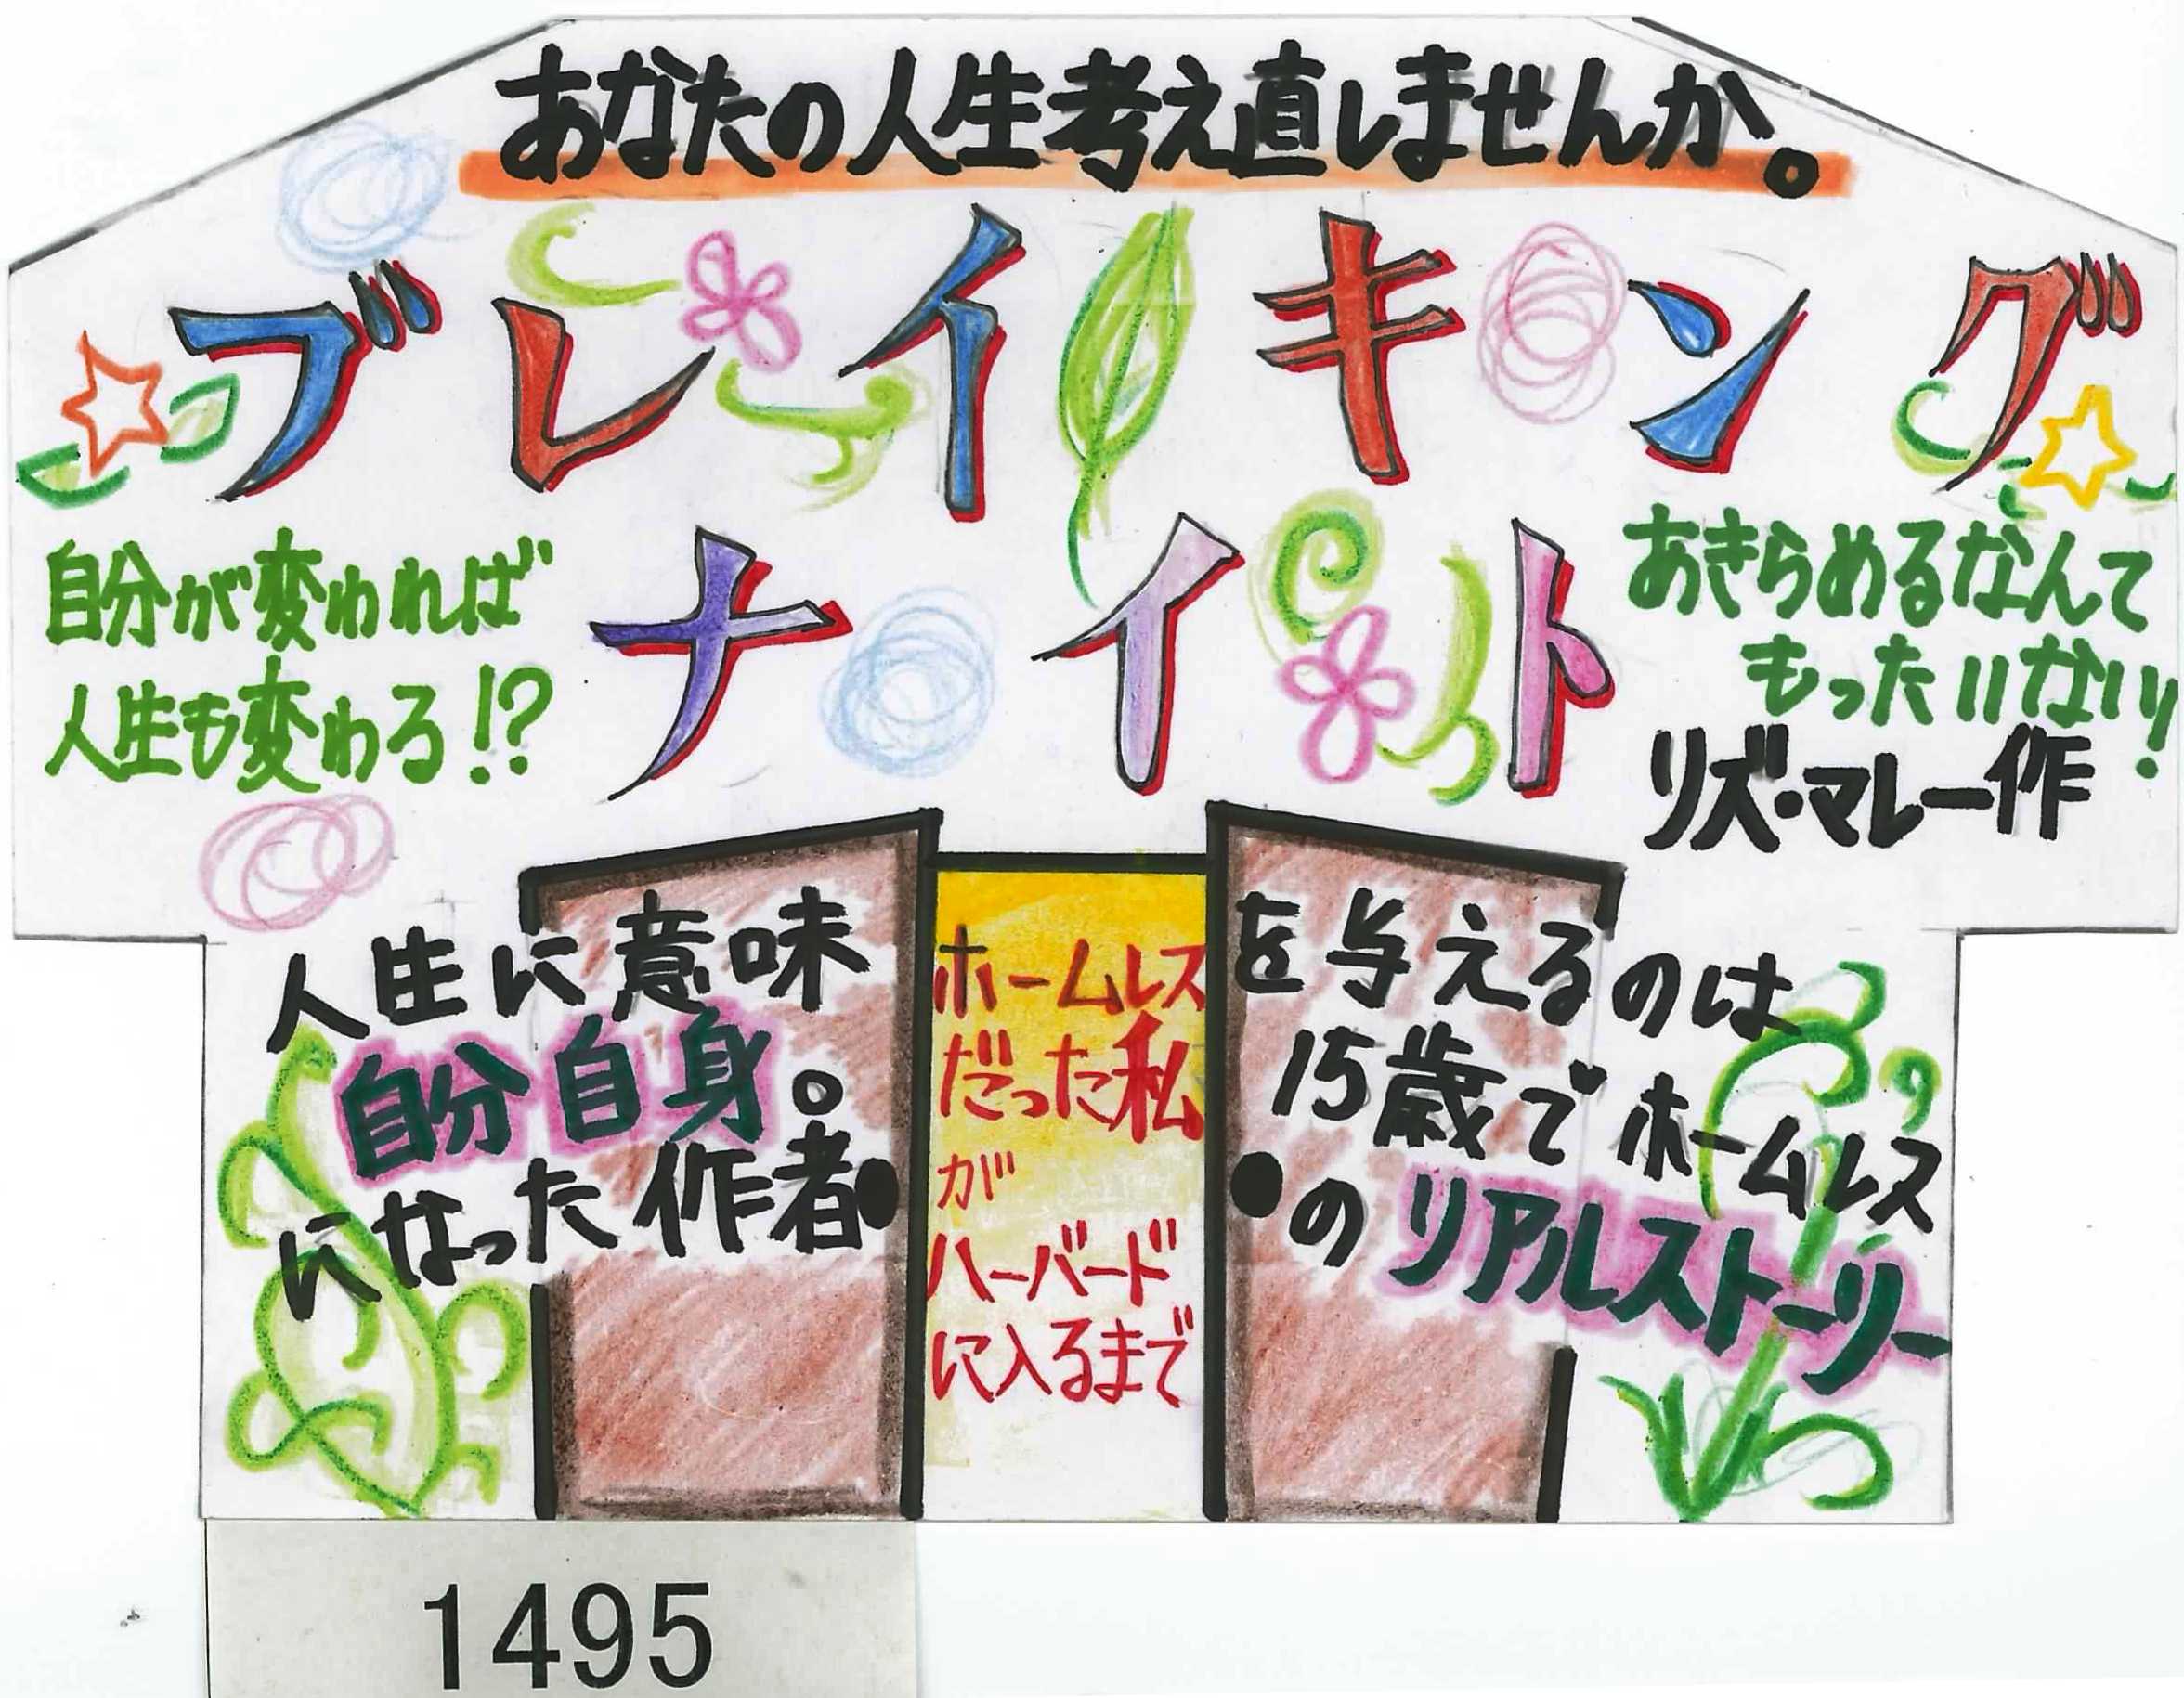 あなたの人生考え直しませんか。
ブレイキング
ナイト
自分が変われば
人生も変わる!?
あきらめるなんて
もったいない!
リズ・マレー作
人生に意味を与えるのは
自分自身。15歳でホームレス
になった作者のリアルストーリー
ホームレス
だった私
が
ハーバード
に入るまで
1495